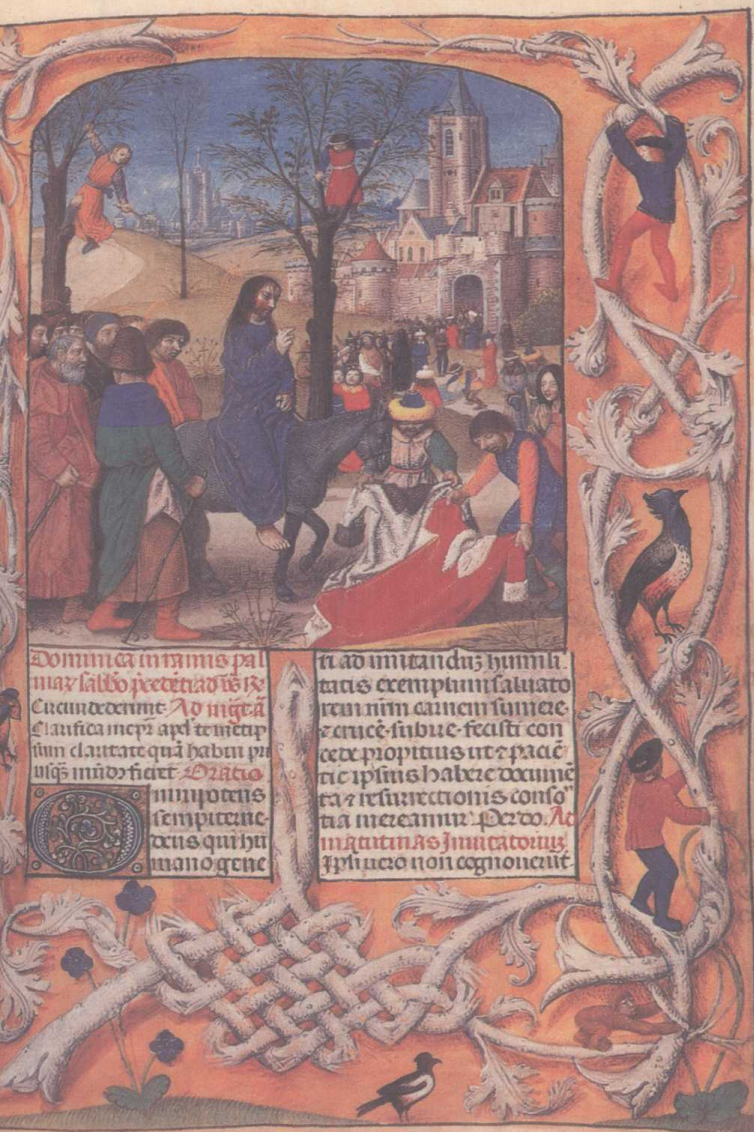 Dominica in ramis pal
maꝝ sabbo p̄cedēti ad vs Re
Cucurrederunt. Ad mgt̄ā
Clarifica me pr̄ apd̄ te metip̄
sum claritate quā habui pri
usq̃ mūdꝰ fieret. Oratio
Omnipotens
sempiterne
deus qui hu
mano gene
ri ad imitandūꝫ humili
tatis exemplum saluato
rem nrm̄ carnem sumere
⁊ crucē subire fecisti con
cede propitius ut ⁊ paciē
tie ipsius habere documē
ta ⁊ resurrectionis conso
tia mereamur. Per eo. Ad
matutinas Inuitatoriuꝫ
Ipsi uero non cognouerūt